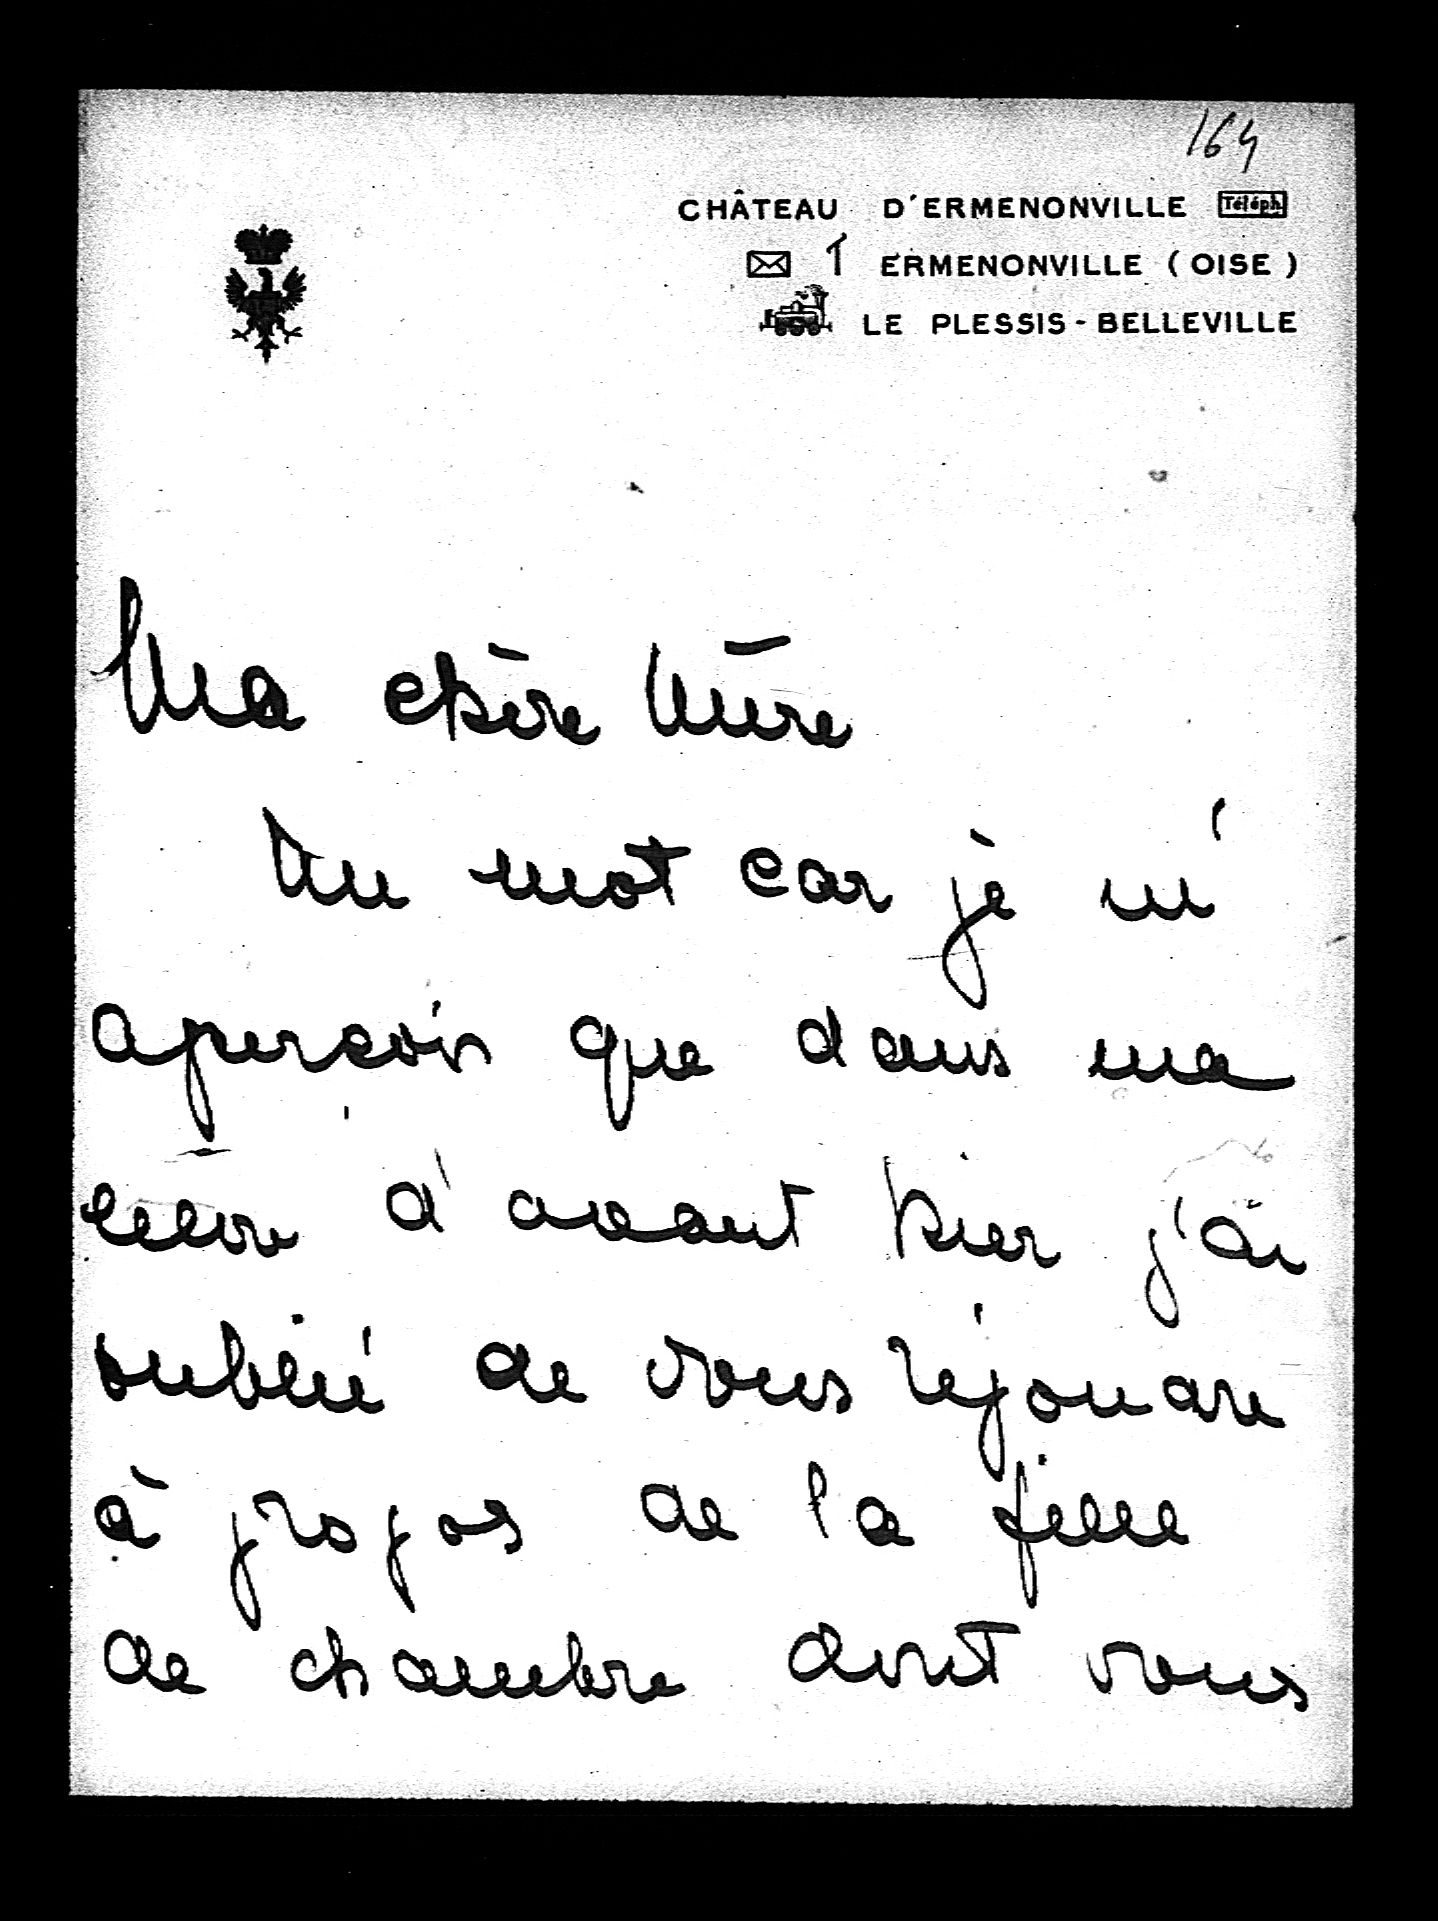 164
CHÂTEAU D'ERMENONVILLE Téléph.
T ERMENONVILLE (OISE)
LE PLESSIS-BELLEVILLE
Ma chère Mère
Un mot car je m'
aperçois que dans ma
lettre d'avant hier j'ai
oublié de vous répondre
à propos de la fille
de chambre dont vous